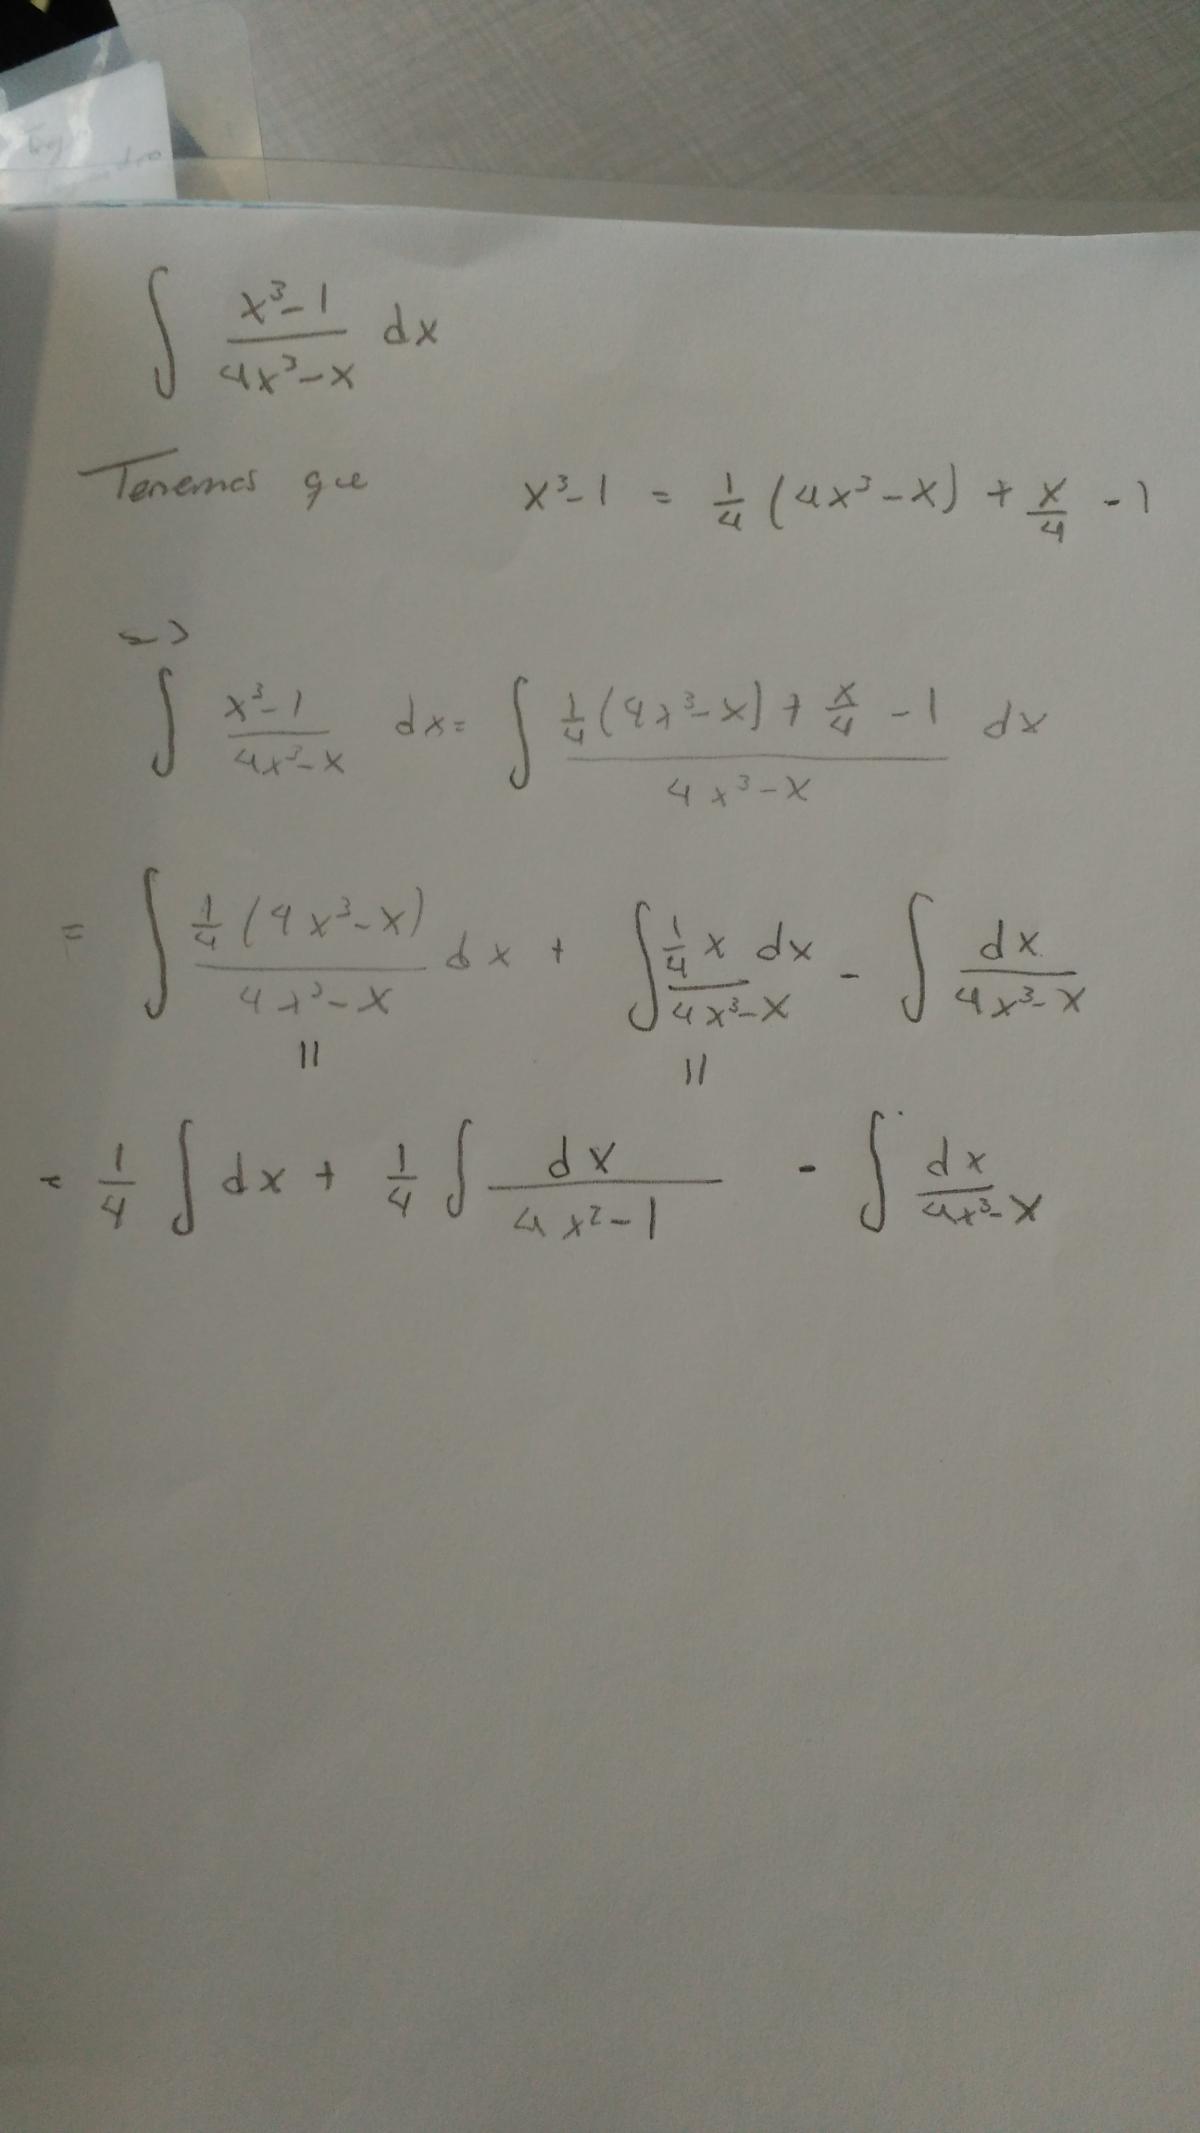 ∫ (x³-1)/(4x³-x) dx
Tenemos que x³-1 = 1/4 (4x³-x) + x/4 - 1
=>
∫ (x³-1)/(4x³-x) dx = ∫ (1/4(4x³-x) + x/4 - 1)/(4x³-x) dx
= ∫ (1/4 (4x³-x))/(4x³-x) dx + ∫ (1/4 x dx)/(4x³-x) - ∫ dx/(4x³-x)
|| ||
= 1/4 ∫ dx + 1/4 ∫ dx/(4x²-1) - ∫ dx/(4x³-x)